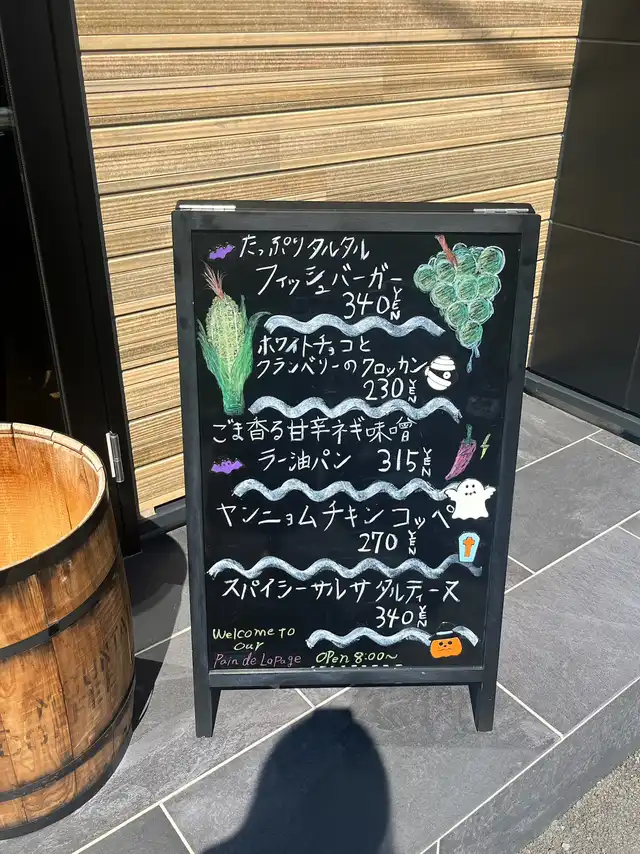 たっぷりタルタル
フィッシュバーガー
340YEN
ホワイトチョコと
クランベリーのクロッカン
230YEN
ごま香る甘辛ネギ味噌
ラー油パン 315YEN
ヤンニョムチキンコッペ
270YEN
スパイシーサルサタルティーヌ
340YEN
Welcome to
our
Pain de Lapage OPen 8:00~